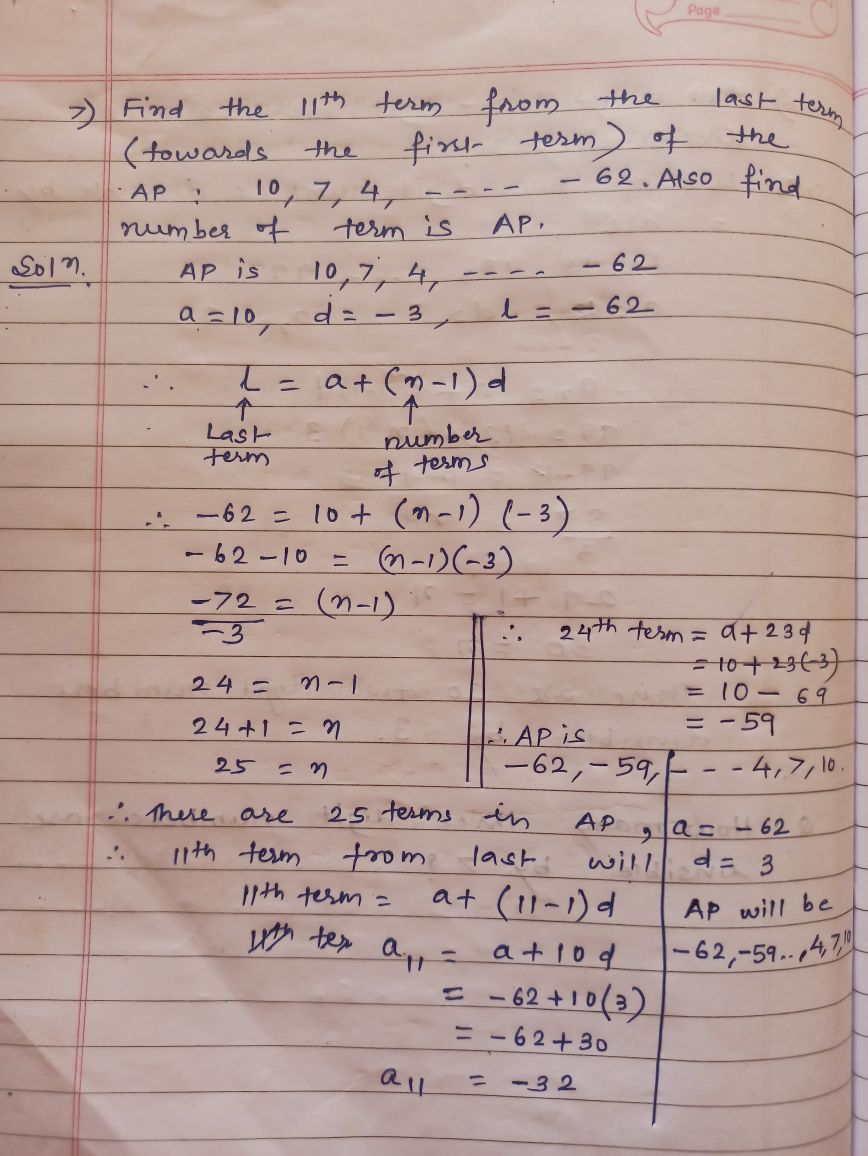 Page
7) Find the 11th term from the last term
(towards the first term) of the
AP : 10, 7, 4, ---- - 62. Also find
number of term is AP.
Soln. AP is 10, 7, 4, ---- - 62
a = 10, d = - 3, l = - 62
∴ l = a + (n-1) d
↑ ↑
Last number
term of terms
∴ -62 = 10 + (n-1) (-3)
- 62 - 10 = (n-1)(-3)
-72 = (n-1)
-3
24 = n-1
24+1 = n
25 = n
∴ 24th term = a+23d
= 10+23(-3)
= 10 - 69
= -59
∴ AP is
-62, -59, - - - 4, 7, 10.
∴ There are 25 terms in AP,
∴ 11th term from last will
11th term = a+ (11-1)d
11th ter a11 = a + 10d
= -62+10(3)
= -62+30
a11 = -32
a = -62
d = 3
AP will be
-62,-59..,4,7,10